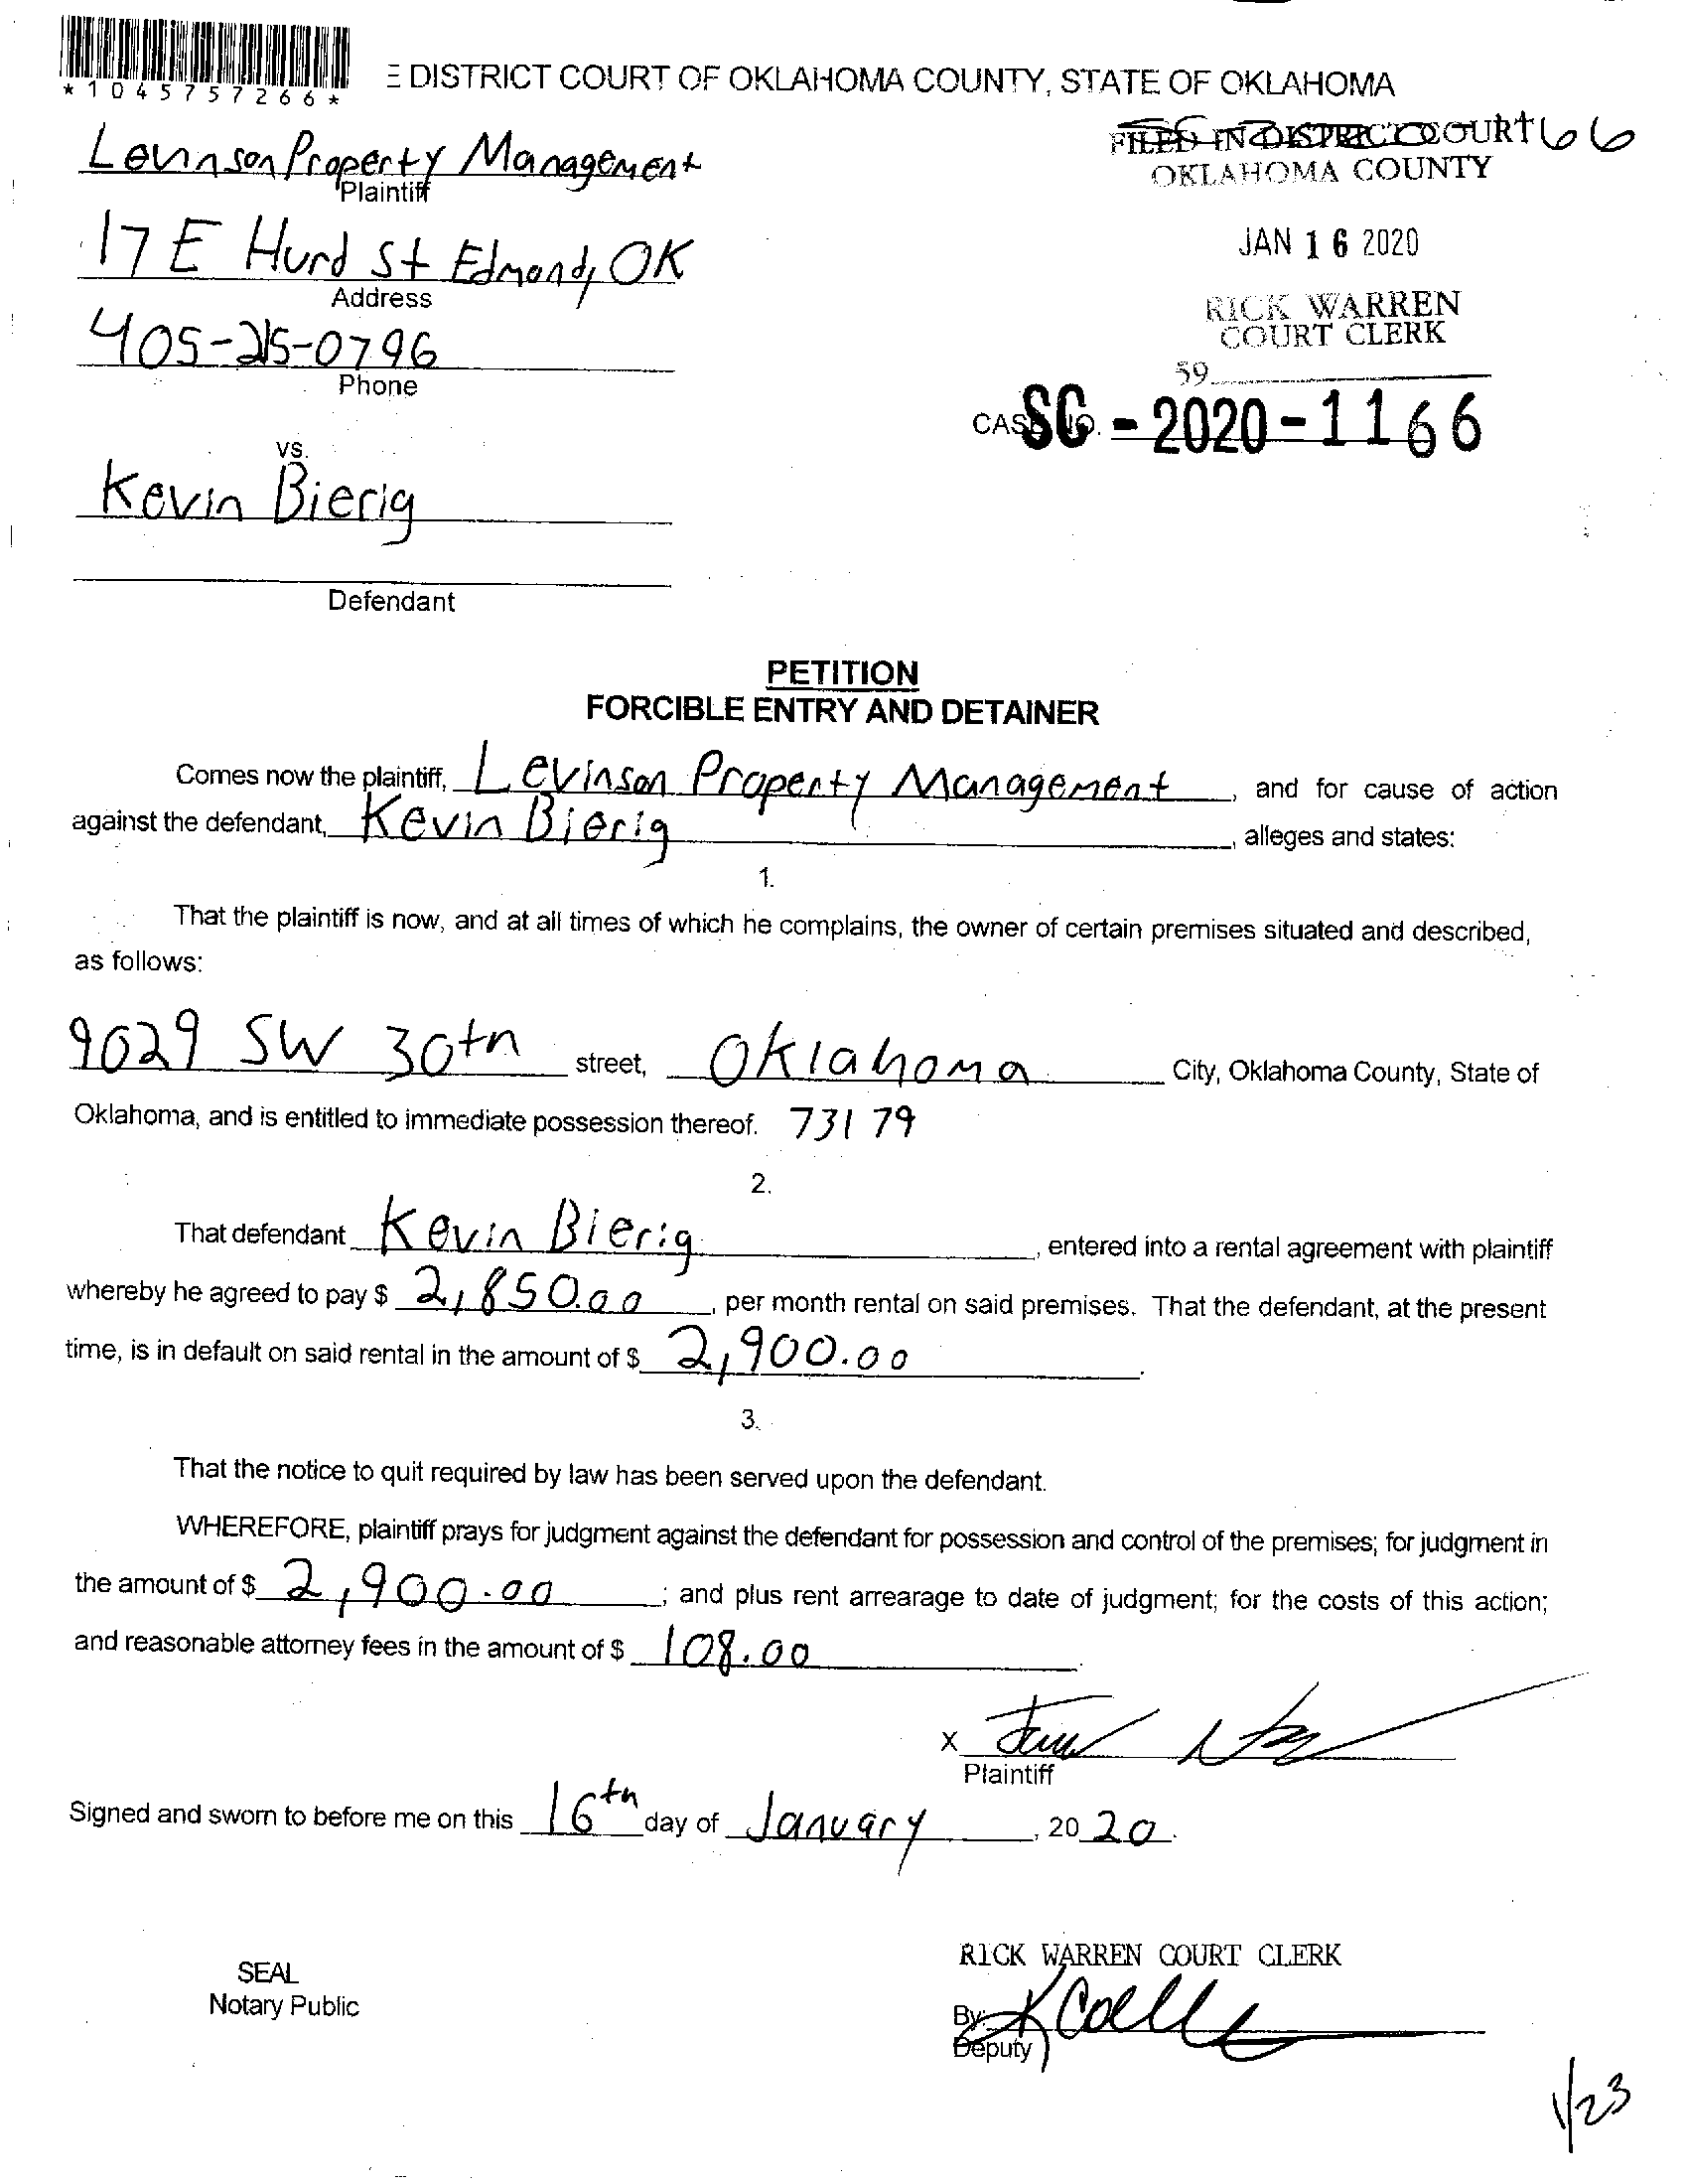 *1045757266*
E DISTRICT COURT OF OKLAHOMA COUNTY, STATE OF OKLAHOMA
FILED IN DISTRICT COURT
OKLAHOMA COUNTY
JAN 16 2020
RICK WARREN
COURT CLERK
59
CASE NO. SC-2020-1166
Levinson Property Management
Plaintiff
17 E Hurd St Edmond, OK
Address
405-215-0796
Phone
vs.
Kevin Bierig
Defendant
PETITION
FORCIBLE ENTRY AND DETAINER
Comes now the plaintiff, Levinson Property Management, and for cause of action
against the defendant, Kevin Bierig, alleges and states:
1.
That the plaintiff is now, and at all times of which he complains, the owner of certain premises situated and described,
as follows:
9029 SW 30th street, Oklahoma City, Oklahoma County, State of
Oklahoma, and is entitled to immediate possession thereof. 73179
2.
That defendant Kevin Bierig, entered into a rental agreement with plaintiff
whereby he agreed to pay $ 2,850.00, per month rental on said premises. That the defendant, at the present
time, is in default on said rental in the amount of $ 2,900.00.
3.
That the notice to quit required by law has been served upon the defendant.
WHEREFORE, plaintiff prays for judgment against the defendant for possession and control of the premises; for judgment in
the amount of $ 2,900.00; and plus rent arrearage to date of judgment; for the costs of this action;
and reasonable attorney fees in the amount of $ 108.00.
X
Plaintiff
Signed and sworn to before me on this 16th day of January, 2020.
SEAL
Notary Public
RICK WARREN COURT CLERK
By:
Deputy
1/23